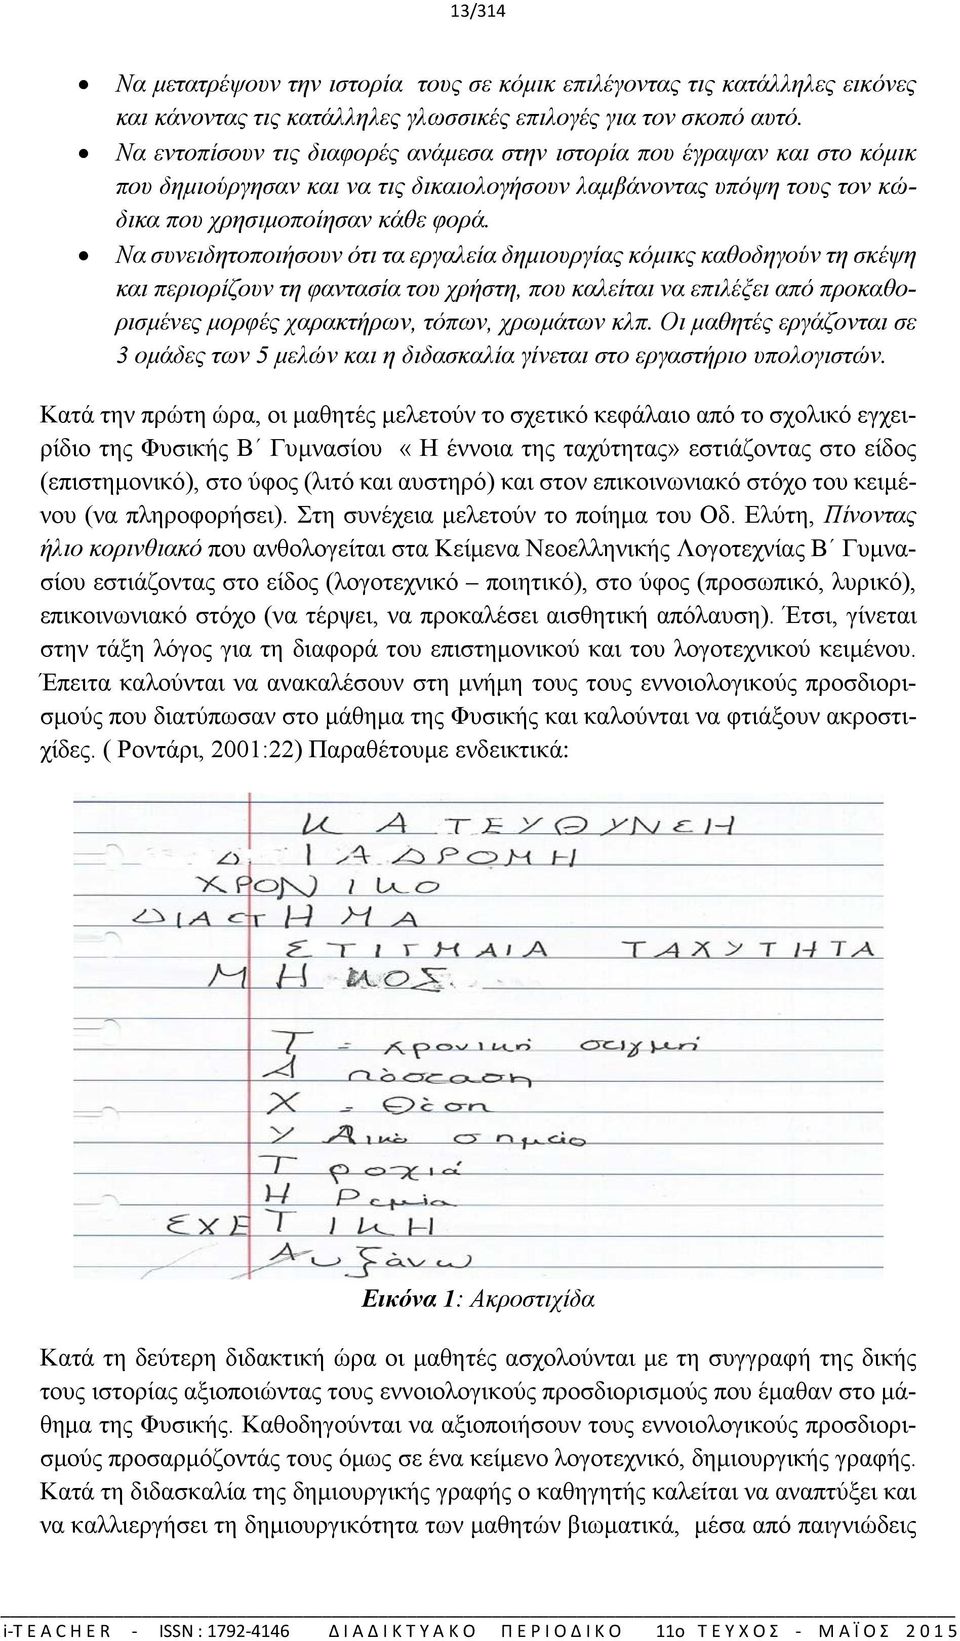 13/314
• Να μετατρέψουν την ιστορία τους σε κόμικ επιλέγοντας τις κατάλληλες εικόνες
και κάνοντας τις κατάλληλες γλωσσικές επιλογές για τον σκοπό αυτό.
• Να εντοπίσουν τις διαφορές ανάμεσα στην ιστορία που έγραψαν και στο κόμικ
που δημιούργησαν και να τις δικαιολογήσουν λαμβάνοντας υπόψη τους τον κώ-
δικα που χρησιμοποίησαν κάθε φορά.
• Να συνειδητοποιήσουν ότι τα εργαλεία δημιουργίας κόμικς καθοδηγούν τη σκέψη
και περιορίζουν τη φαντασία του χρήστη, που καλείται να επιλέξει από προκαθο-
ρισμένες μορφές χαρακτήρων, τόπων, χρωμάτων κλπ. Οι μαθητές εργάζονται σε
3 ομάδες των 5 μελών και η διδασκαλία γίνεται στο εργαστήριο υπολογιστών.
Κατά την πρώτη ώρα, οι μαθητές μελετούν το σχετικό κεφάλαιο από το σχολικό εγχει-
ρίδιο της Φυσικής Β΄ Γυμνασίου «Η έννοια της ταχύτητας» εστιάζοντας στο είδος
(επιστημονικό), στο ύφος (λιτό και αυστηρό) και στον επικοινωνιακό στόχο του κειμέ-
νου (να πληροφορήσει). Στη συνέχεια μελετούν το ποίημα του Οδ. Ελύτη, Πίνοντας
ήλιο κορινθιακό που ανθολογείται στα Κείμενα Νεοελληνικής Λογοτεχνίας Β΄ Γυμνα-
σίου εστιάζοντας στο είδος (λογοτεχνικό – ποιητικό), στο ύφος (προσωπικό, λυρικό),
επικοινωνιακό στόχο (να τέρψει, να προκαλέσει αισθητική απόλαυση). Έτσι, γίνεται
στην τάξη λόγος για τη διαφορά του επιστημονικού και του λογοτεχνικού κειμένου.
Έπειτα καλούνται να ανακαλέσουν στη μνήμη τους τους εννοιολογικούς προσδιορι-
σμούς που διατύπωσαν στο μάθημα της Φυσικής και καλούνται να φτιάξουν ακροστι-
χίδες. ( Ροντάρι, 2001:22) Παραθέτουμε ενδεικτικά:
Κ Α ΤΕΥΘΥΝΕΗ
Δ ΙΑΔΡΟΜΗ
ΧΡΟΝΙΚΟ
ΔΙΑΣΤΗΜΑ
ΣΤΙΓΜΑΙΑ ΤΑΧΥΤΗΤΑ
ΜΗΚΟΣ
Τ = χρονική στιγμή
Α πόσταση
Χ = Θέση
Υ λικό σημείο
Τ ροχιά
Η ρεμία
ΣΧΕΤΙΚΗ
Αυξάνω
Εικόνα 1: Ακροστιχίδα
Κατά τη δεύτερη διδακτική ώρα οι μαθητές ασχολούνται με τη συγγραφή της δικής
τους ιστορίας αξιοποιώντας τους εννοιολογικούς προσδιορισμούς που έμαθαν στο μά-
θημα της Φυσικής. Καθοδηγούνται να αξιοποιήσουν τους εννοιολογικούς προσδιορι-
σμούς προσαρμόζοντάς τους όμως σε ένα κείμενο λογοτεχνικό, δημιουργικής γραφής.
Κατά τη διδασκαλία της δημιουργικής γραφής ο καθηγητής καλείται να αναπτύξει και
να καλλιεργήσει τη δημιουργικότητα των μαθητών βιωματικά, μέσα από παιγνιώδεις
i-TEACHER - ISSN : 1792-4146 ΔΙΑΔΙΚΤΥΑΚΟ ΠΕΡΙΟΔΙΚΟ 11ο ΤΕΥΧΟΣ - ΜΑΪΟΣ 2015